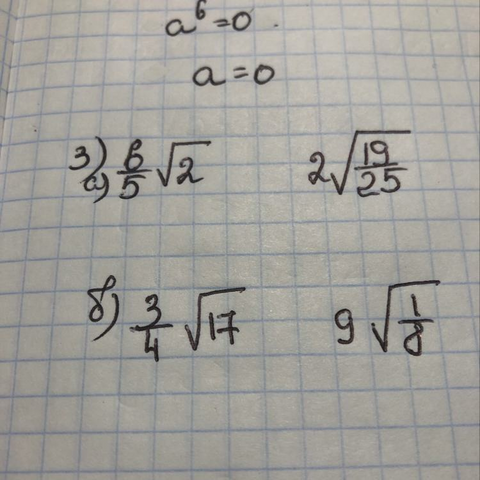 a⁶=0.
a=0
3) а) 6/5 √2 2√(19/25)
б) 3/4 √17 9√(1/8)